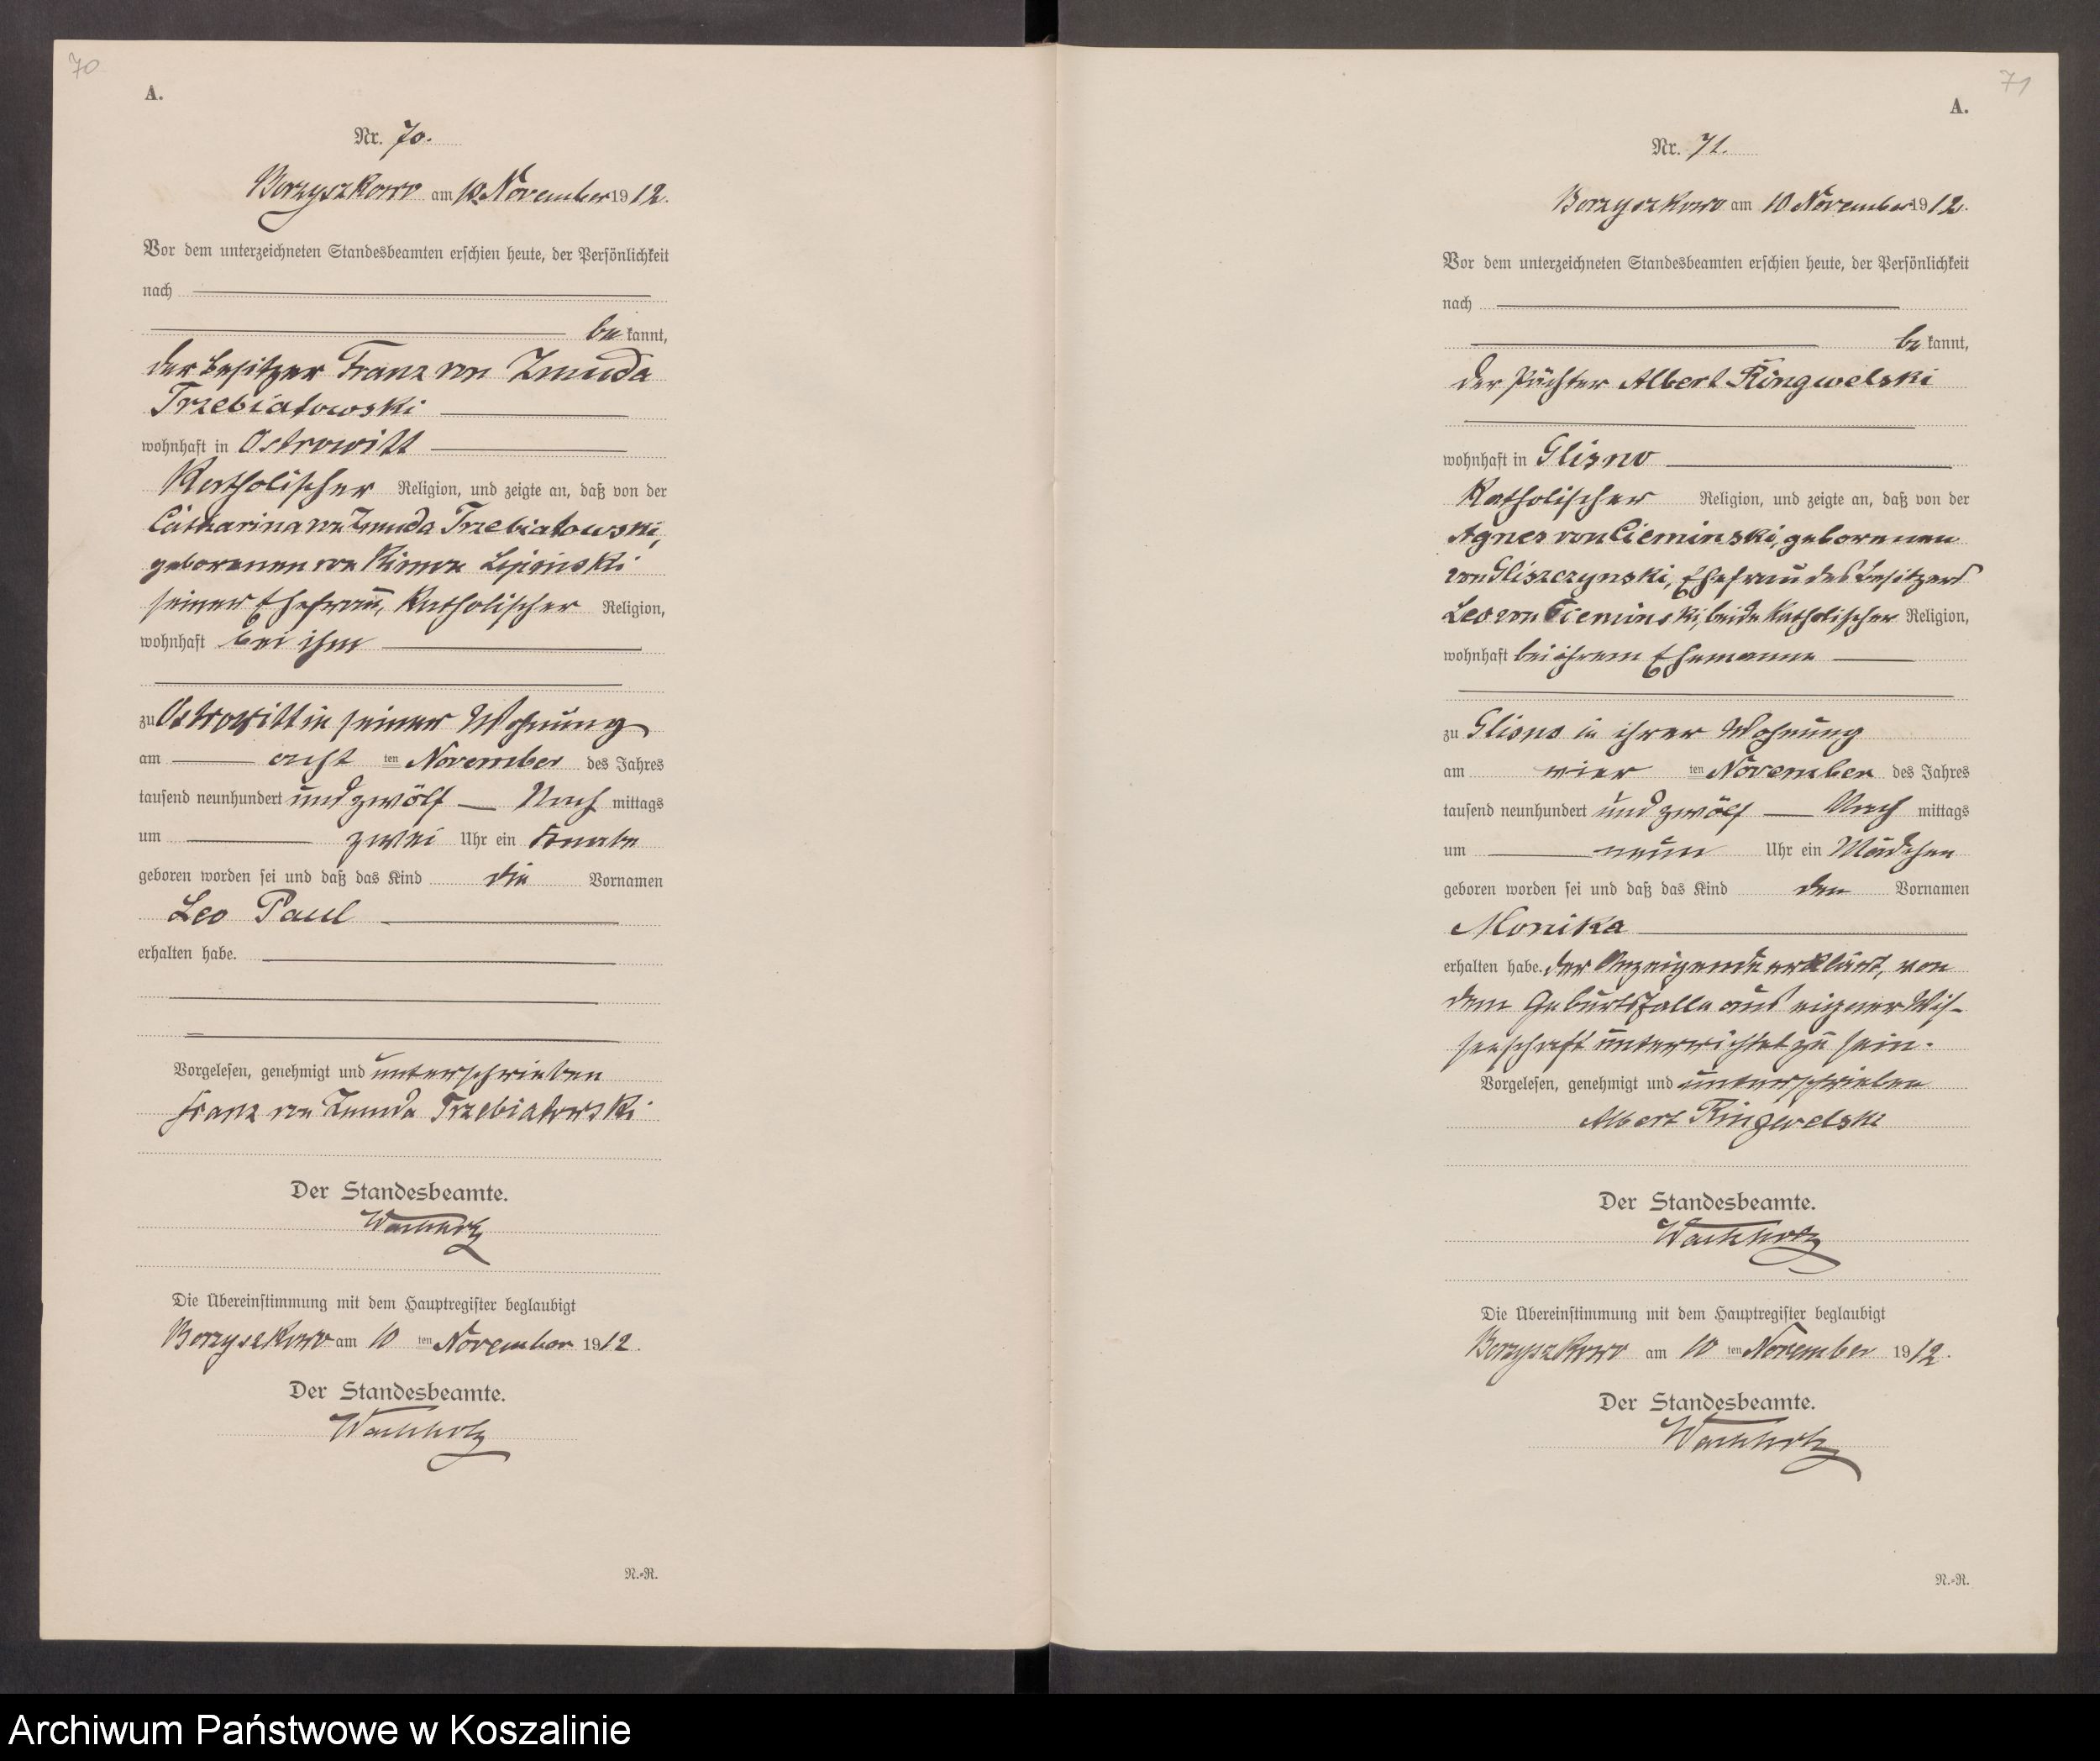 70
A.
Nr. 70.
Borzyszkowo am 10. November 1912.
Vor dem unterzeichneten Standesbeamten erschien heute, der Persönlichkeit
nach
bekannt,
der Besitzer Franz von Zmuda
Trzebiatowski
wohnhaft in Ostrowitt
Katholischer Religion, und zeigte an, daß von der
Catharina von Zmuda Trzebiatowski,
geborenen von Lipinski
seiner Ehefrau, Katholischer Religion,
wohnhaft bei ihm
zu Ostrowitt in seiner Wohnung
am acht ten November des Jahres
tausend neunhundert und zwölf Nach mittags
um zwei Uhr ein Knabe
geboren worden sei und daß das Kind die Vornamen
Leo Paul
erhalten habe.
Vorgelesen, genehmigt und unterschrieben
Franz von Zmuda Trzebiatowski
Der Standesbeamte.
Wachholz
Die Übereinstimmung mit dem Hauptregister beglaubigt
Borzyszkowo am 10 ten November 1912.
Der Standesbeamte.
Wachholz
N.-R.
71
A.
Nr. 71.
Borzyszkowo am 10 November 1912.
Vor dem unterzeichneten Standesbeamten erschien heute, der Persönlichkeit
nach
bekannt,
der Pächter Albert Ringwelski
wohnhaft in Glisno
Katholischer Religion, und zeigte an, daß von der
Agnes von Cieminski, geborenen
von Gliszczynski, Ehefrau des Besitzers
Leo von Cieminski, beide Katholischer Religion,
wohnhaft bei ihrem Ehemanne
zu Glisno in ihrer Wohnung
am vier ten November des Jahres
tausend neunhundert und zwölf Nach mittags
um neun Uhr ein Mädchen
geboren worden sei und daß das Kind den Vornamen
Monika
erhalten habe. Der Anzeigende erklärt, von
dem Geburtsfalle aus eigener Wis-
senschaft unterrichtet zu sein.
Vorgelesen, genehmigt und unterschrieben
Albert Ringwelski
Der Standesbeamte.
Wachholz
Die Übereinstimmung mit dem Hauptregister beglaubigt
Borzyszkowo am 10 ten November 1912.
Der Standesbeamte.
Wachholz
N.-R.
Archiwum Państwowe w Koszalinie